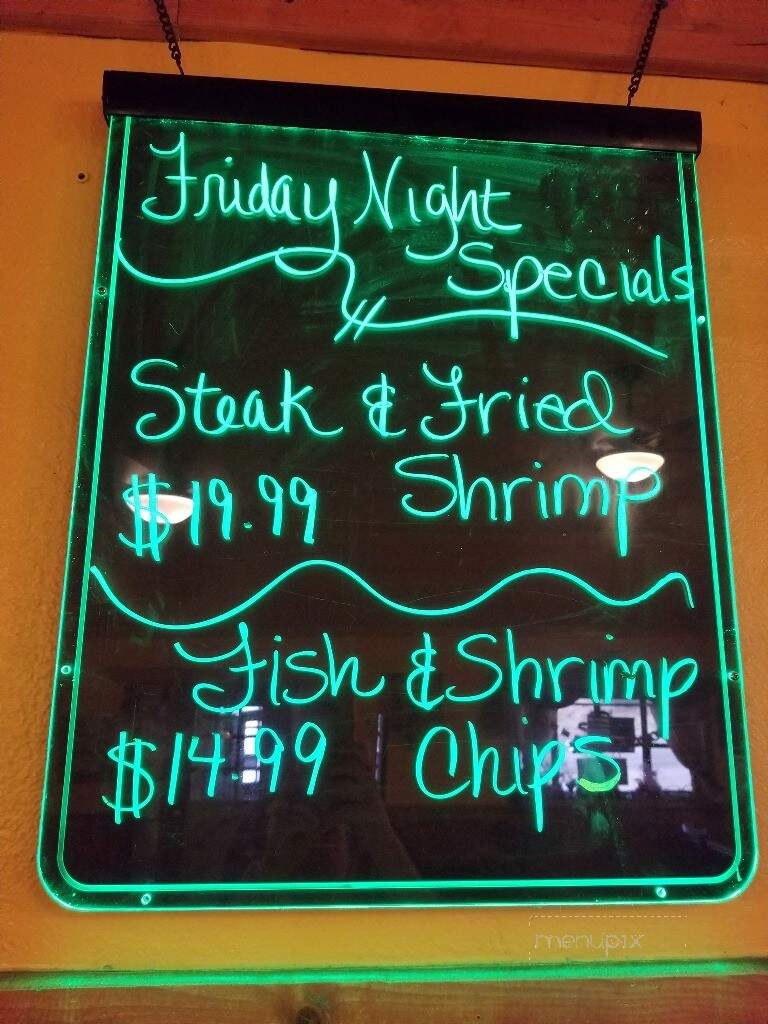 Friday Night
Specials
Steak & Fried
$19.99 Shrimp
Fish & Shrimp
$14.99 Chips
menupix